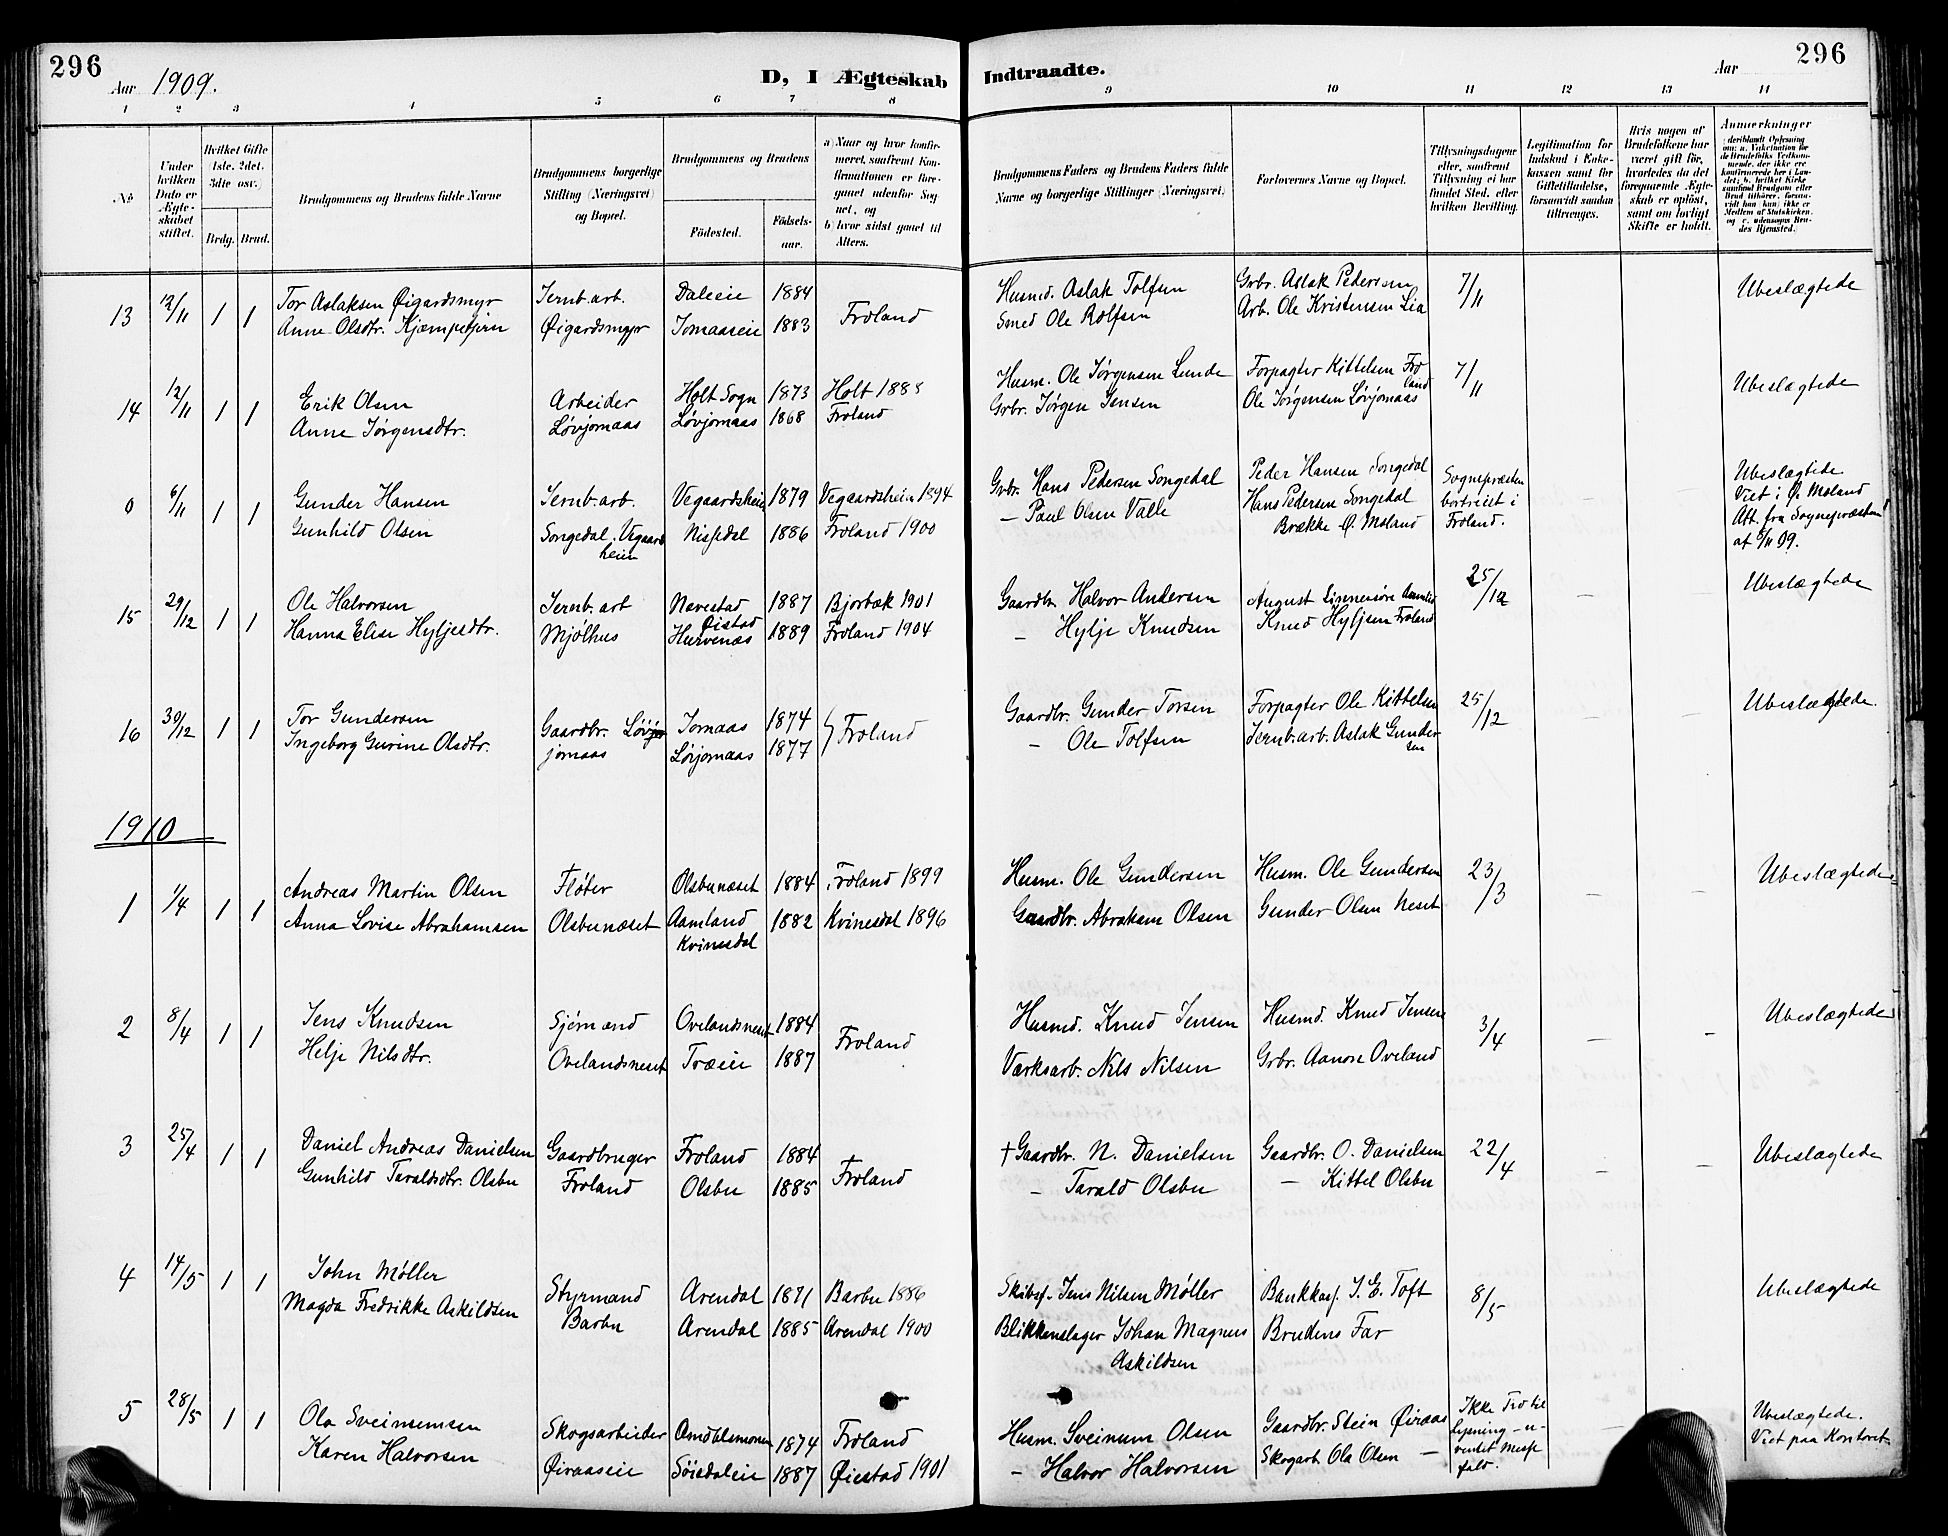 296
Aar 1909.
D, I Ægteskab Indtraadte.
Aar
296
1 2 3 4 5 6 7 8 9 10 11 12 13 14
No
Under hvilken Dato er Ægteskabet stiftet.
Hvilket Gifte (1ste. 2det. 3dte osv.)
Brdg. Brud.
Brudgommens og Brudens fulde Navne
Brudgommens borgerlige Stilling (Næringsvei) og Bopæl.
Brudgommens og Brudens
Födested.
Födselsaar.
a) Naar og hvor konfirmeret, saafremt Konfirmationen er foregaaet udenfor Sognet, og
b) hvor sidst gaaet til Alters.
Brudgommens Faders og Brudens Faders fulde Navne og borgerlige Stillinger (Næringsvei)
Forlovernes Navne og Bopæl.
Tillysningsdagene eller, saafremt Tillysning ei har fundet Sted, efter hvilken Bevilling.
Legitimation for Indskud i Enkekassen samt for Giftetilladelse, forsaavidt saadan tiltrænges.
Hvis nogen af Brudefolkene har været gift för, hvorledes da det foregaaende Ægteskab er oplöst, samt om lovligt Skifte er holdt.
Anmærkninger
13 12/11 1 1 Tor Aslaksen Øigardsmyr Jernb.arb. Daleeie 1884 Froland Husmd. Aslak Tolfsen Grbr. Aslak Pedersen 7/11 Ubeslægtede
Anne Olsdtr. Kjæmpetjern Øigardsmyr Tomaaseie 1883 Smed Ole Rolfsen Arb. Ole Kristensen Lia
14 12/11 1 1 Erik Olsen Arbeider Holt Sogn 1873 Holt 1888 Husm. Ole Jørgensen Lunde Forpagter Kittelsen Froland 7/11 Ubeslægtede
Anne Jørgensdtr. Løvjomaas Løvjomaas 1868 Froland Grbr. Jørgen Jensen Ole Jørgensen Løvjomaas
0 6/11 1 1 Gunder Hansen Jernb.arb. Vegaardsheien 1879 Vegaardsheien 1894 Grbr. Hans Pedersen Songedal Peder Hansen Songedal Sognepræsten – Ubeslægtede
Gunhild Olsen Songedal, Vegaardsheien Nissedal 1886 Froland 1900 – Paul Olsen Valle Hans Pedersen Songedal bortreist i Viet i Ø. Moland
Brække Ø. Moland Froland. Att. fra Sognepræsten
af 6/11 09.
15 29/12 1 1 Ole Halvorsen Jernb.arb Nævestad 1887 Bjorbæk 1901 Gaardbr. Halvor Andersen August 25/12 – Ubeslægtede
Hanna Elise Hyljesdtr. Mjølhus Øistad Hurvenæs 1889 Froland 1904 – Hylje Knudsen Knud Hyljsen Froland
16 30/12 1 1 Tor Gundersen Gaardbr. Løvjomaas Jomaas 1874 } Froland Gaardbr. Gunder Torsen Forpagter Ole Kittelsen 25/12 – – Ubeslægtede.
Ingeborg Gurine Olsdtr. Løvjomaas 1877 – Ole Tolfsen Jernb.arb. Aslak Gundersen
1910
1 1/4 1 1 Andreas Martin Olsen Fløter Olsbunæset 1884 Froland 1899 Husm. Ole Gundersen Husm. Ole Gundersen 23/3 – – Ubeslægtede
Anna Lovise Abrahamsen Olsbunæset Aamland 1882 Kvinesdal 1896 Gaardbr. Abraham Olsen Gunder Olsen Neset
Kvinesdal
2 8/4 1 1 Jens Knudsen Sjömand Ovelandsneset 1884 Froland Husmd. Knud Jensen Husmd. Knud Jensen 3/4 – – Ubeslægtede
Helje Nilsdtr. Ovelandsneset Træeie 1887 Værksarb. Nils Nilsen Grbr. Aanon Oveland
3 25/4 1 1 Daniel Andreas Danielsen Gaardbruger Froland 1884 Froland † Gaardbr. N. Danielsen Gaardbr. O. Danielsen 22/4 – – Ubeslægtede
Gunhild Taraldsdtr. Olsbu Froland Olsbu 1885 – Tarald Olsbu – Kittel Olsbu
4 14/5 1 1 John Møller Styrmand Arendal 1871 Barbu 1886 Skibsf. Jens Nilsen Møller Bankkas. J. E. Toft 8/5 Ubeslægtede
Magda Fredrikke Askildsen Barbu Arendal 1885 Arendal 1900 Blikkenslager Johan Magnus Brudens Far
Askildsen
5 28/5 1 1 Ola Skogsarbeider 1874 Froland Husm. Sveinum Olsen Gaardbr. Stein Øiraas Ikke Tid til Ubeslægtede.
Karen Halvorsen Øiraaseie 1887 Øiestad 1901 – Halvor Halvorsen Skogarb. Ola Olsen – Lysning – Viet paa Kontoret